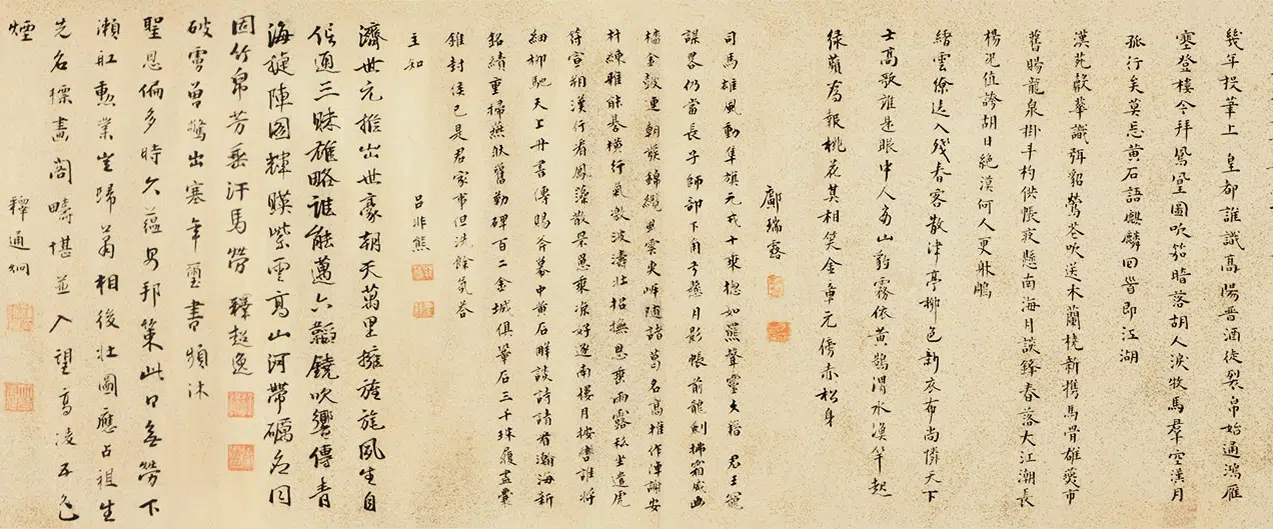 幾年投筆上 皇都誰識高陽昔酒徒裂帛始通鴻雁
塞登樓今拜鳳皇圖吹笳暗落胡人淚牧馬羣空漢月
孤行矣莫忘黄石語麒麟回首即江湖
漢苑歡華識弭貂鶯花吹送木蘭橈新携馬骨雄燕市
舊賜龍泉掛斗杓供帳夜懸南海月談鋒春落大江潮長
楊況值誇胡日絶漠何人更射鵰
縉雲徐送入殘春客散津亭柳色新衣布尚憐天下
士高歌誰是眼中人家山豹霧依黄鵠渭水漁竿起
綠蘋為報桃花莫相笑金章元傍赤松身
鄺瑞露
司馬雄風動隼旗元戎十乘摠如羆聲靈久播 君王寵
謀畧仍當長子師部下角弓懸月影帳前龍劍拂霜威幽
金鼓連朝簇錦纜風雲尖峰隨諸葛名高推作陣謝安
才練雅能碁橫行氣激波濤壯招撫恩垂雨露私坐遣虎
符宣朔漢行看鳳藻散景思乘涼好逐南樓月按轡誰將
細柳馳天上丹書傳賜券幕中黄石解談詩請看瀚海新
銘績重掃燕然舊勒碑百二金城俱鞏后三千珠履盡橐
錐封侯已是君家事但洗餘氛答
主知
吕非熊
濟世元推出世豪朝天萬里擁旌旄風生自
信通三昧雄略誰能邁六韜鐃吹響傳青
海磧陣圖輝暎紫雲高山河帶礪名同
固竹帛芳垂汗馬勞 釋超逸
破虜曾驚出塞年璽書頻沐
聖恩偏多時久蘊安邦策此日無勞下
瀨舡勳業豈歸蕭相後壯圖應占祖生
先名標畫閣疇堪並入望高凌五色
煙
釋通炯